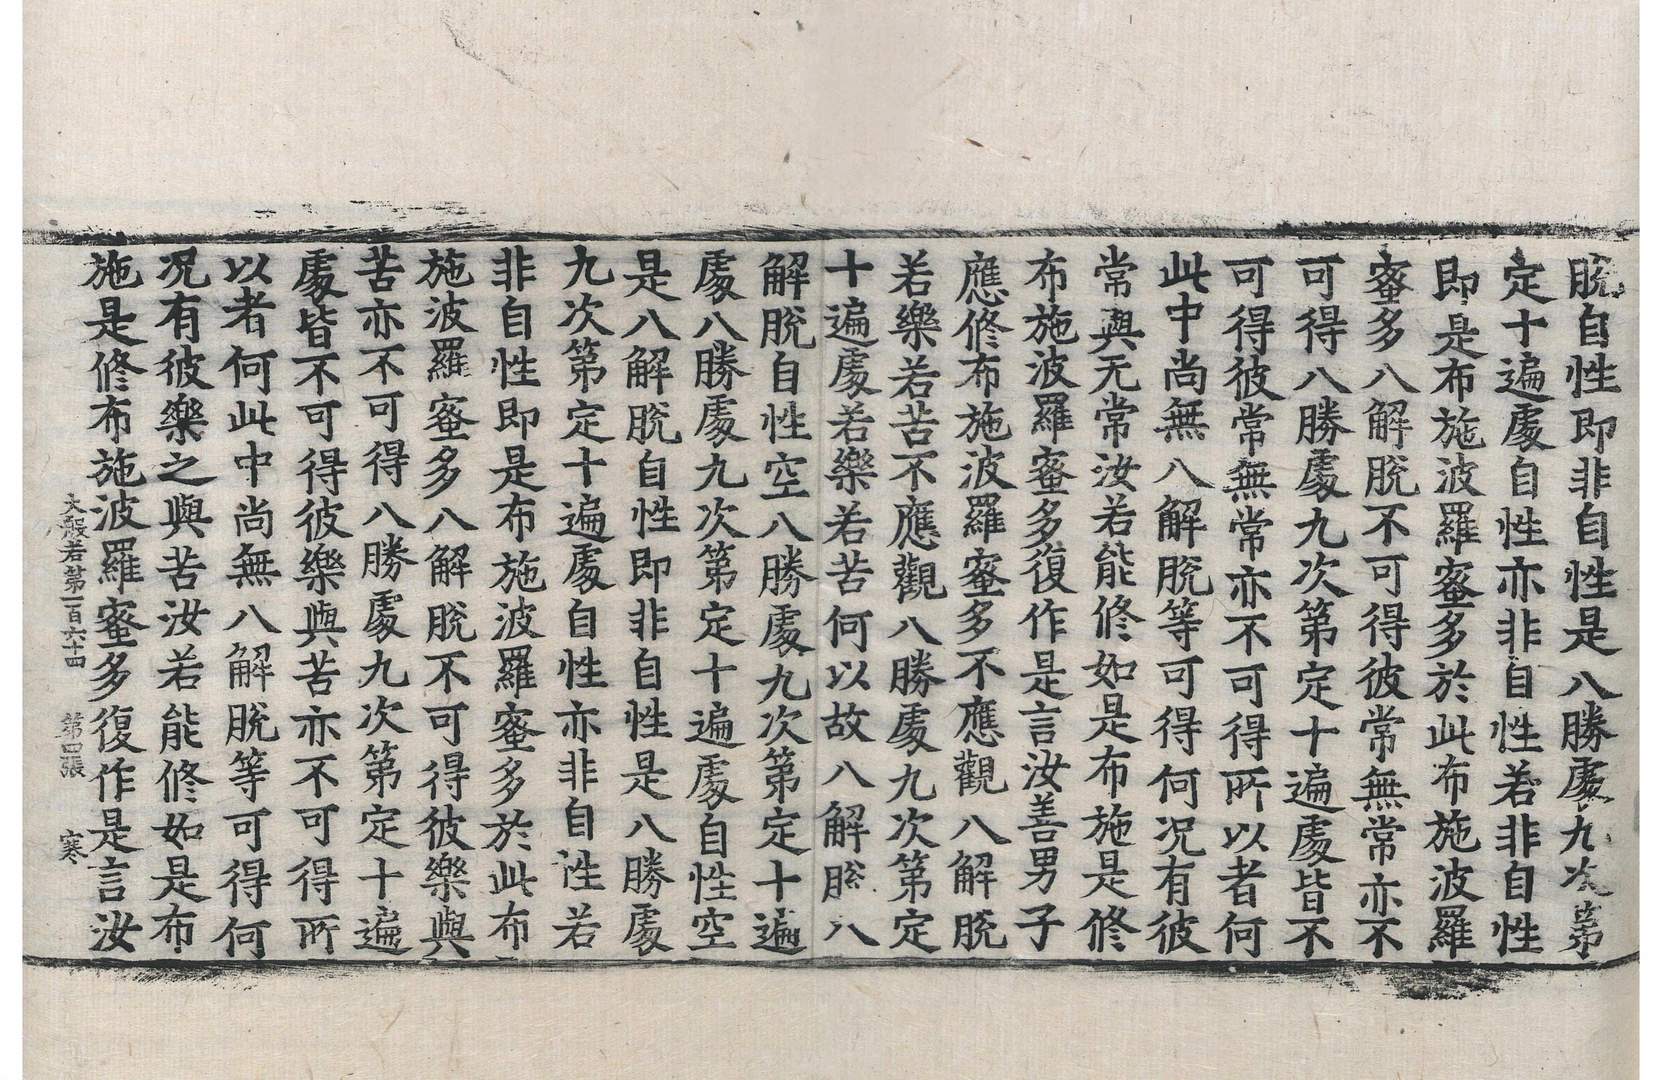 脫自性即非自性是八勝處九次第
定十遍處自性亦非自性若非自性
即是布施波羅蜜多於此布施波羅
蜜多八解脫不可得彼常無常亦不
可得八勝處九次第定十遍處皆不
可得彼常無常亦不可得所以者何
此中尚無八解脫等可得何况有彼
常與无常汝若能修如是布施是修
布施波羅蜜多復作是言汝善男子
應修布施波羅蜜多不應觀八解脫
若樂若苦不應觀八勝處九次第定
十遍處若樂若苦何以故八解脫八
解脫自性空八勝處九次第定十遍
處八勝處九次第定十遍處自性空
是八解脫自性即非自性是八勝處
九次第定十遍處自性亦非自性若
非自性即是布施波羅蜜多於此布
施波羅蜜多八解脫不可得彼樂與
苦亦不可得八勝處九次第定十遍
處皆不可得彼樂與苦亦不可得所
以者何此中尚無八解脫等可得何
况有彼樂之與苦汝若能修如是布
施是修布施波羅蜜多復作是言汝
大般若第一百六十四 第四張 寒